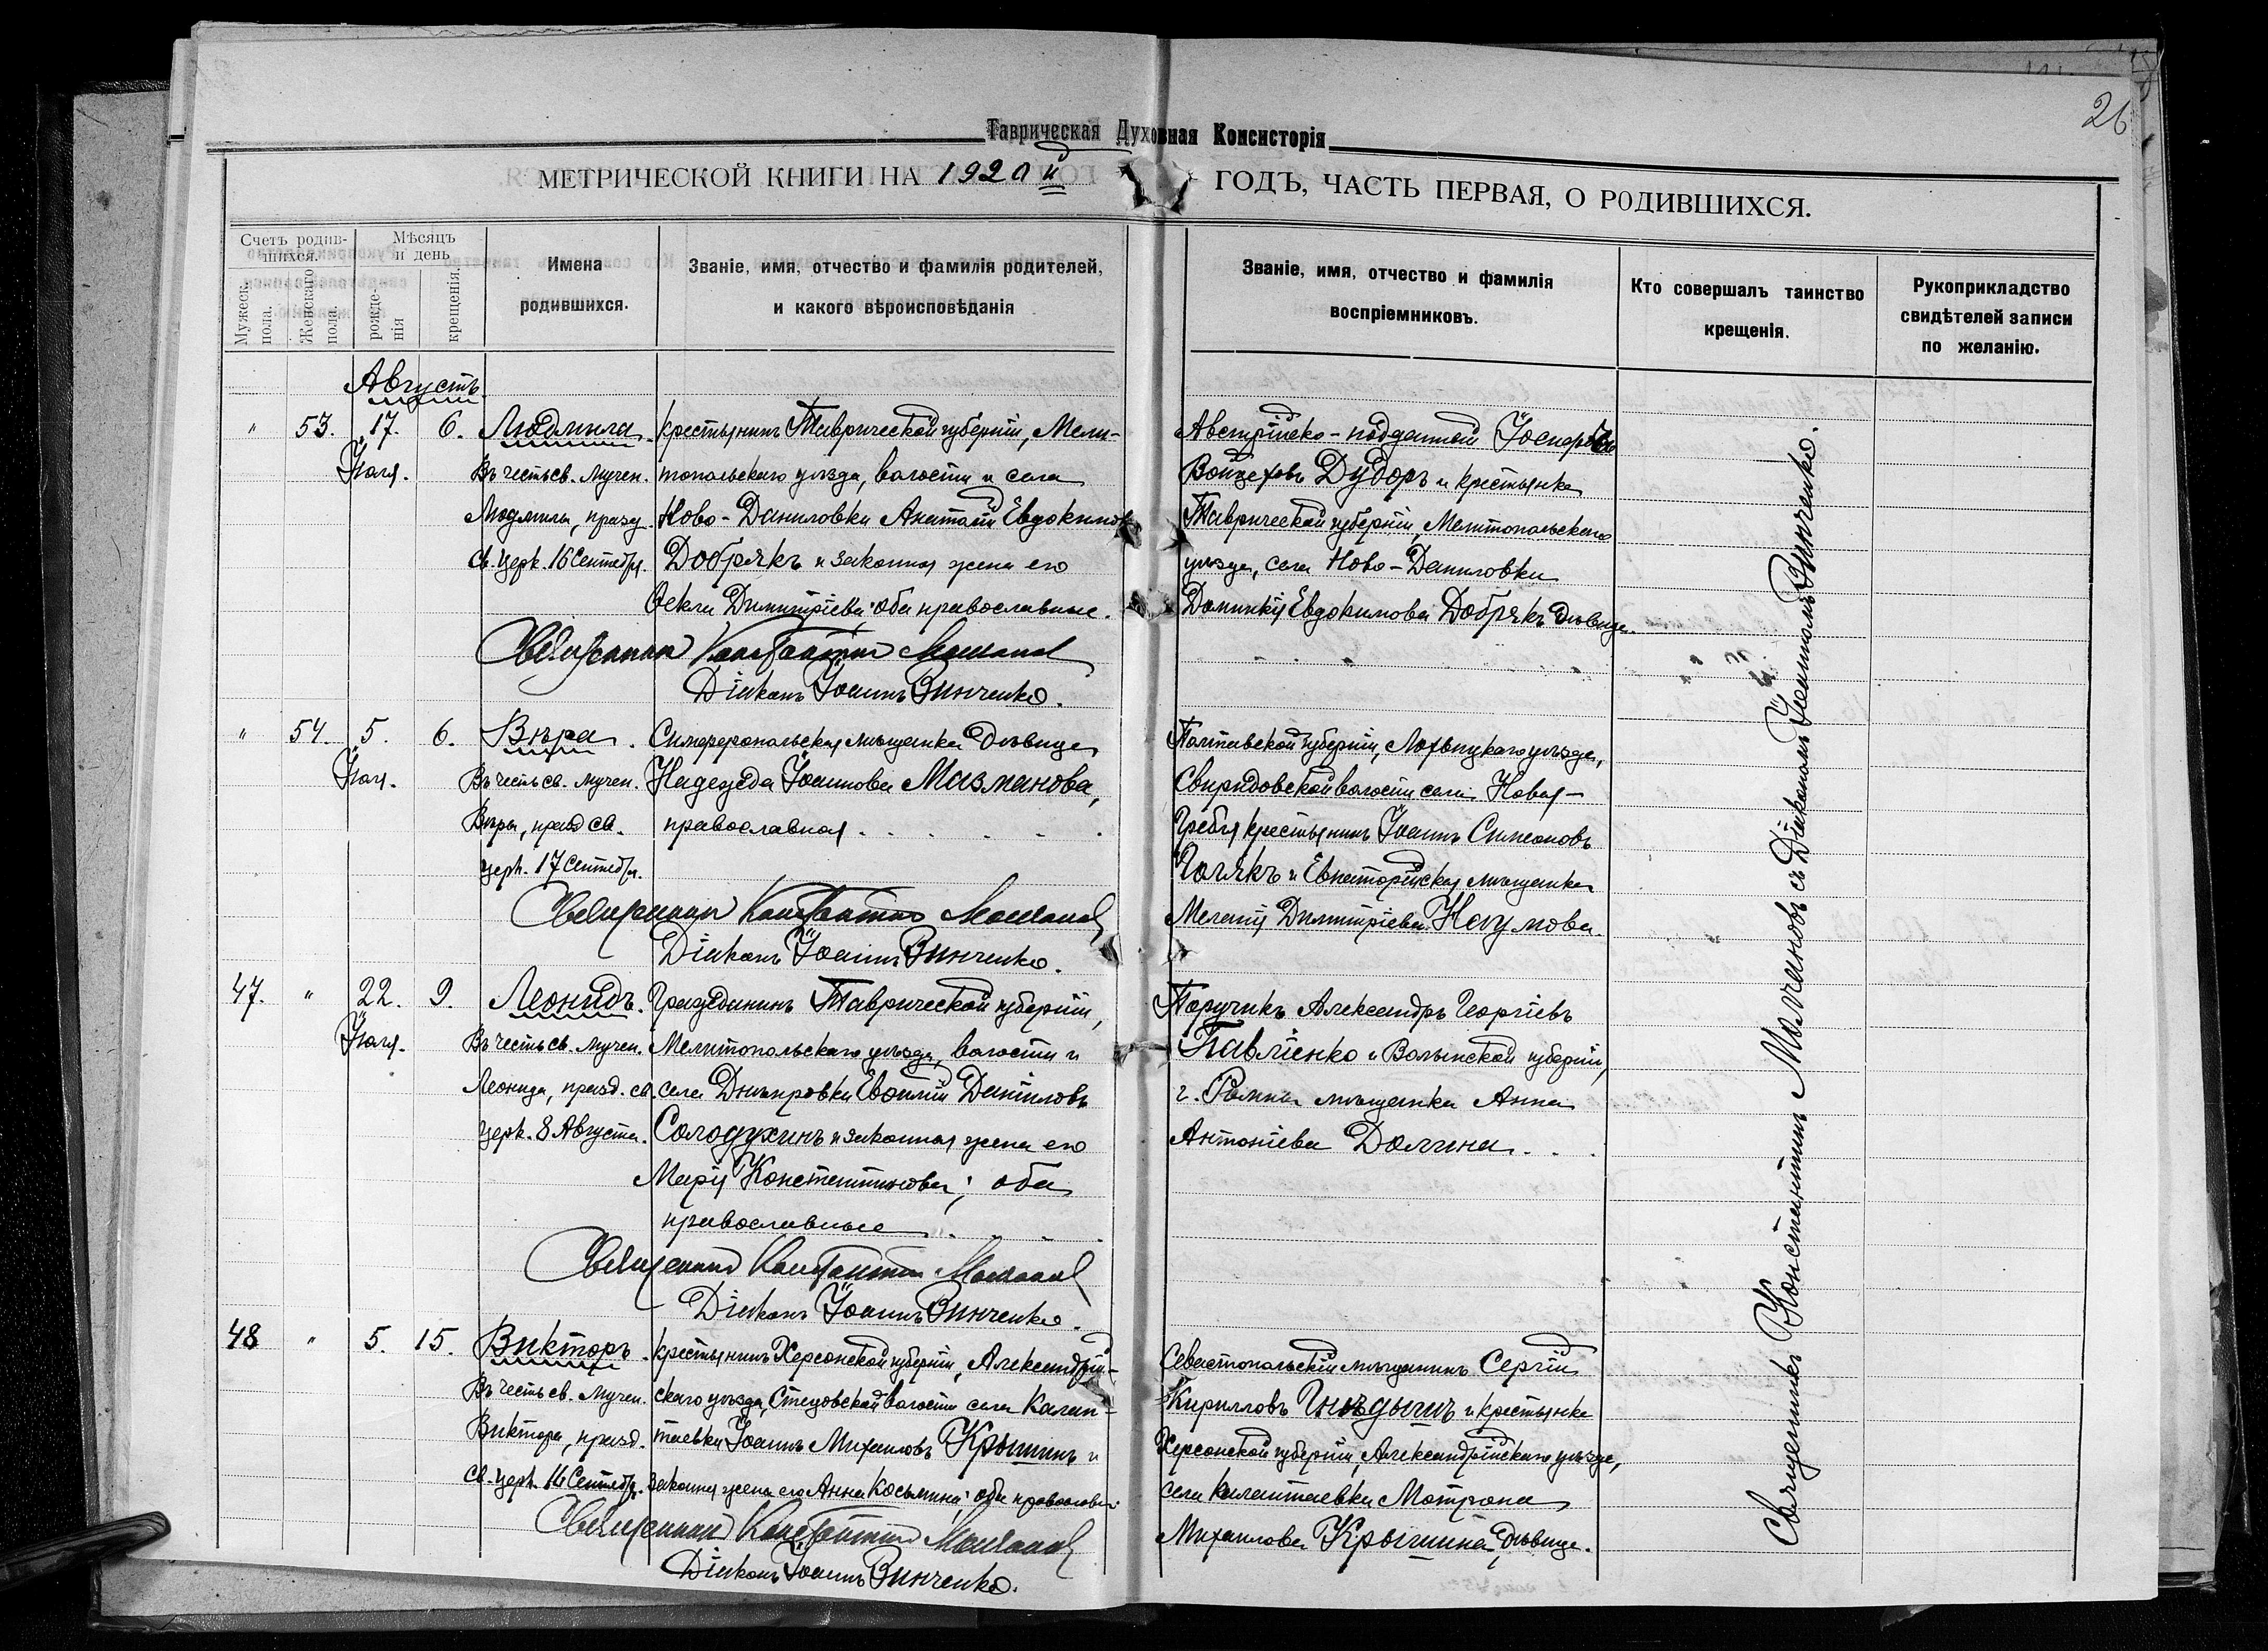 26
Таврическая Духовная Консисторія
МЕТРИЧЕСКОЙ КНИГИ НА 1920й ГОДЪ, ЧАСТЬ ПЕРВАЯ, О РОДИВШИХСЯ.
Счетъ родив-
шихся.
Мужеск. пола.
Женскаго пола.
Мѣсяцъ
и день
рожде-
нія
крещенія.
Имена
родившихся.
Званіе, имя, отчество и фамилія родителей,
и какого вѣроисповѣданія
Званіе, имя, отчество и фамилія
воспріемниковъ.
Кто совершалъ таинство
крещенія.
Рукоприкладство
свидѣтелей записи
по желанію.
Августъ.
" 53. 17. 6. Людмила.
Іюля.
Въ честь св. мучен.
Людмилы, празд.
Св. Церк. 16 Сентебря.
Крестьянинъ Таврической губерніи, Мели-
топольскаго уѣзда, волости и села
Ново-Даниловки Анатолій Евдокимовъ
Добрякъ и законная жена его
Ѳекла Димитріева; оба православные.
Священникъ Константинъ Молчановъ
Діаконъ Іоаннъ Зинченко.
Австрійско-подданный
Войцеховъ Дудоръ и крестьянка
Таврической губерніи, Мелитопольскаго
уѣзда, села Ново-Даниловки
Домникія Евдокимова Добрякъ дѣвица.
" 54. 5. 6. Вѣра.
Іюля.
Въ честь св. мучен.
Вѣры, празд св.
Церк. 17 Сентебря.
Симферопольская мѣщанка дѣвица
Надежда Іоаннова Мазманова,
православная.
Священникъ Константинъ Молчановъ
Діаконъ Іоаннъ Зинченко.
Полтавской губерніи, Лохвицкаго уѣзда,
Свиридовской волости села Новая-
Гребля крестьянинъ Іоаннъ Симеоновъ
и Евпаторійская мѣщанка
Меланія Димитріева Наумова.
47. " 22. 9. Леонидъ.
Іюля.
Въ честь св. мучен.
Леонида, празд. св.
Церк. 8 Августа.
Гражданинъ Таврической губерніи,
Мелитопольскаго уѣзда, волости и
села Днѣпровки Евѳимій Даніиловъ
Солодухинъ и законная жена его
Марія Константинова; оба
православные
Священникъ Константинъ Молчановъ
Діаконъ Іоаннъ Зинченко.
Поручикъ Александръ Георгіевъ
Павліенко и Волынской губерніи,
г. мѣщанка Анна
Антоніева Долина.
48 " 5. 15. Викторъ.
Въ честь св. мучен.
Виктора, празд.
св. Церк. 16 Сентебр.
Крестьянинъ Херсонской губерніи, Александрій-
скаго уѣзда, Стецовской волости села Калан-
таевки Іоаннъ Михаиловъ Крышинъ и
законная жена его Анна Косьмина; оба православн.
Священникъ Константинъ Молчановъ
Діаконъ Іоаннъ Зинченко.
Севастопольскій мѣщанинъ Сергій
Кирилловъ и крестьянка
Херсонской губерніи, Александрійскаго уѣзда,
села Калантаевки Матрона
Михаилова Крышина, дѣвица.
Священникъ Константинъ Молчановъ съ Діакономъ Іоанномъ Зинченко.